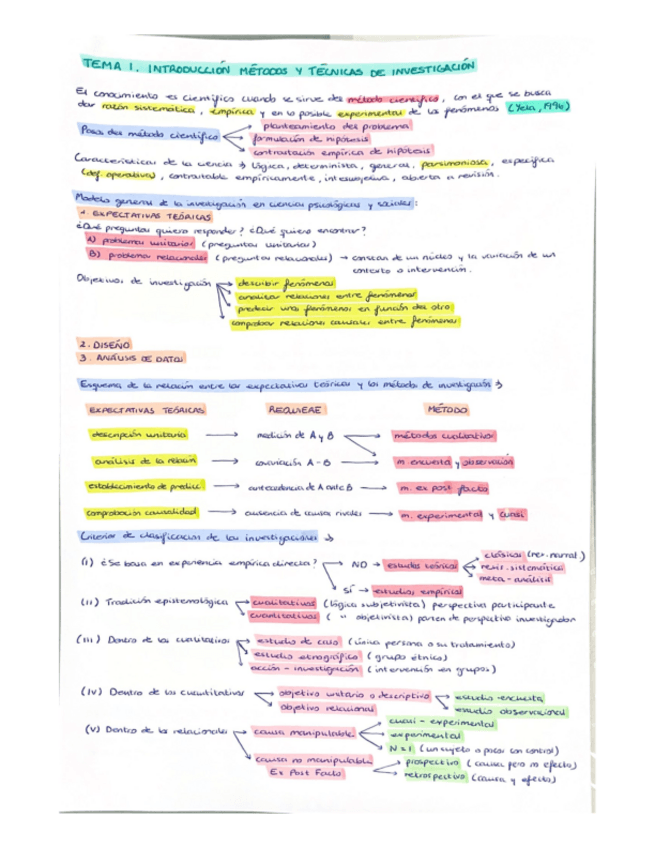 TEMA 1. INTRODUCCIÓN MÉTODOS Y TÉCNICAS DE INVESTIGACIÓN
El conocimiento es científico cuando se sirve del método científico, con el que se busca
dar razón sistemática, empírica y en lo posible experimental de los fenómenos (Yela, 1994)
Pasos del método científico
planteamiento del problema
formulación de hipótesis
contrastación empírica de hipótesis
Características de la ciencia → lógica, determinista, general, parsimoniosa, específica
(def. operativa), contrastable empíricamente, intersubjetiva, abierta a revisión.
Modelo general de la investigación en ciencias psicológicas y sociales:
1 EXPECTATIVAS TEÓRICAS
¿Qué preguntas quiero responder? ¿Qué quiero encontrar?
A) problemas unitarios (preguntas unitarias)
B) problemas relacionales (preguntas relacionales) → constan de un núcleo y la variación de un
contexto o intervención.
Objetivos de investigación
describir fenómenos
analizar relaciones entre fenómenos
predecir unos fenómenos en función del otro
comprobar relaciones causales entre fenómenos
2. DISEÑO
3. ANÁLISIS DE DATOS
Esquema de la relación entre las expectativas teóricas y los métodos de investigación →
EXPECTATIVAS TEÓRICAS REQUIERE MÉTODO
descripción unitaria → medición de A y B → métodos cualitativos
análisis de la relación → covariación A-B → m. encuesta y observación
establecimiento de predicc. → antecedencia de A ante B → m. ex post facto
comprobación causalidad → ausencia de causas rivales → m. experimental y cuasi
Criterios de clasificación de las investigaciones →
(I) ¿Se basa en experiencia empírica directa? NO → estudios teóricos
clásicos (rev. narrat.)
revis. sistemática
meta-análisis
SÍ → estudios empíricos
(II) Tradición epistemológica
cualitativas (lógica subjetivista) perspectiva participante
cuantitativas ( " objetivista) parten de perspectiva investigador
(III) Dentro de las cualitativas
estudio de caso (única persona o su tratamiento)
estudio etnográfico (grupo étnico)
acción-investigación (intervención en grupos)
(IV) Dentro de las cuantitativas
objetivo unitario o descriptivo
estudio encuesta
estudio observacional
objetivo relacional
(V) Dentro de las relacionales
causa manipulable
cuasi-experimental
experimental
N=1 (un sujeto o pocos con control)
causa no manipulable
Ex Post Facto
prospectivo (causa pero no efecto)
retrospectivo (causa y efecto)